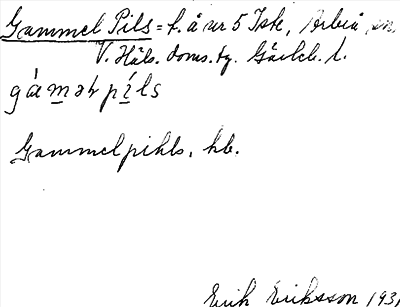 Gammel Pils = f. å nr 5 Iste, Arbrå, sn.
V. Häls. doms. Gävleb. l.
gámər píls
Gammelpihls, hb.
Erik Eriksson 193